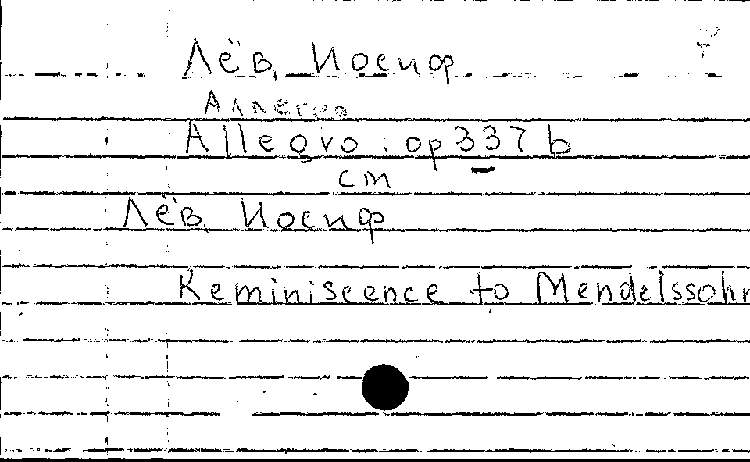 Лёв, Иосиф
Аллегро
Allegro : op 337 b
см
Лёв, Иосиф
Reminiscence to Mendelssohn